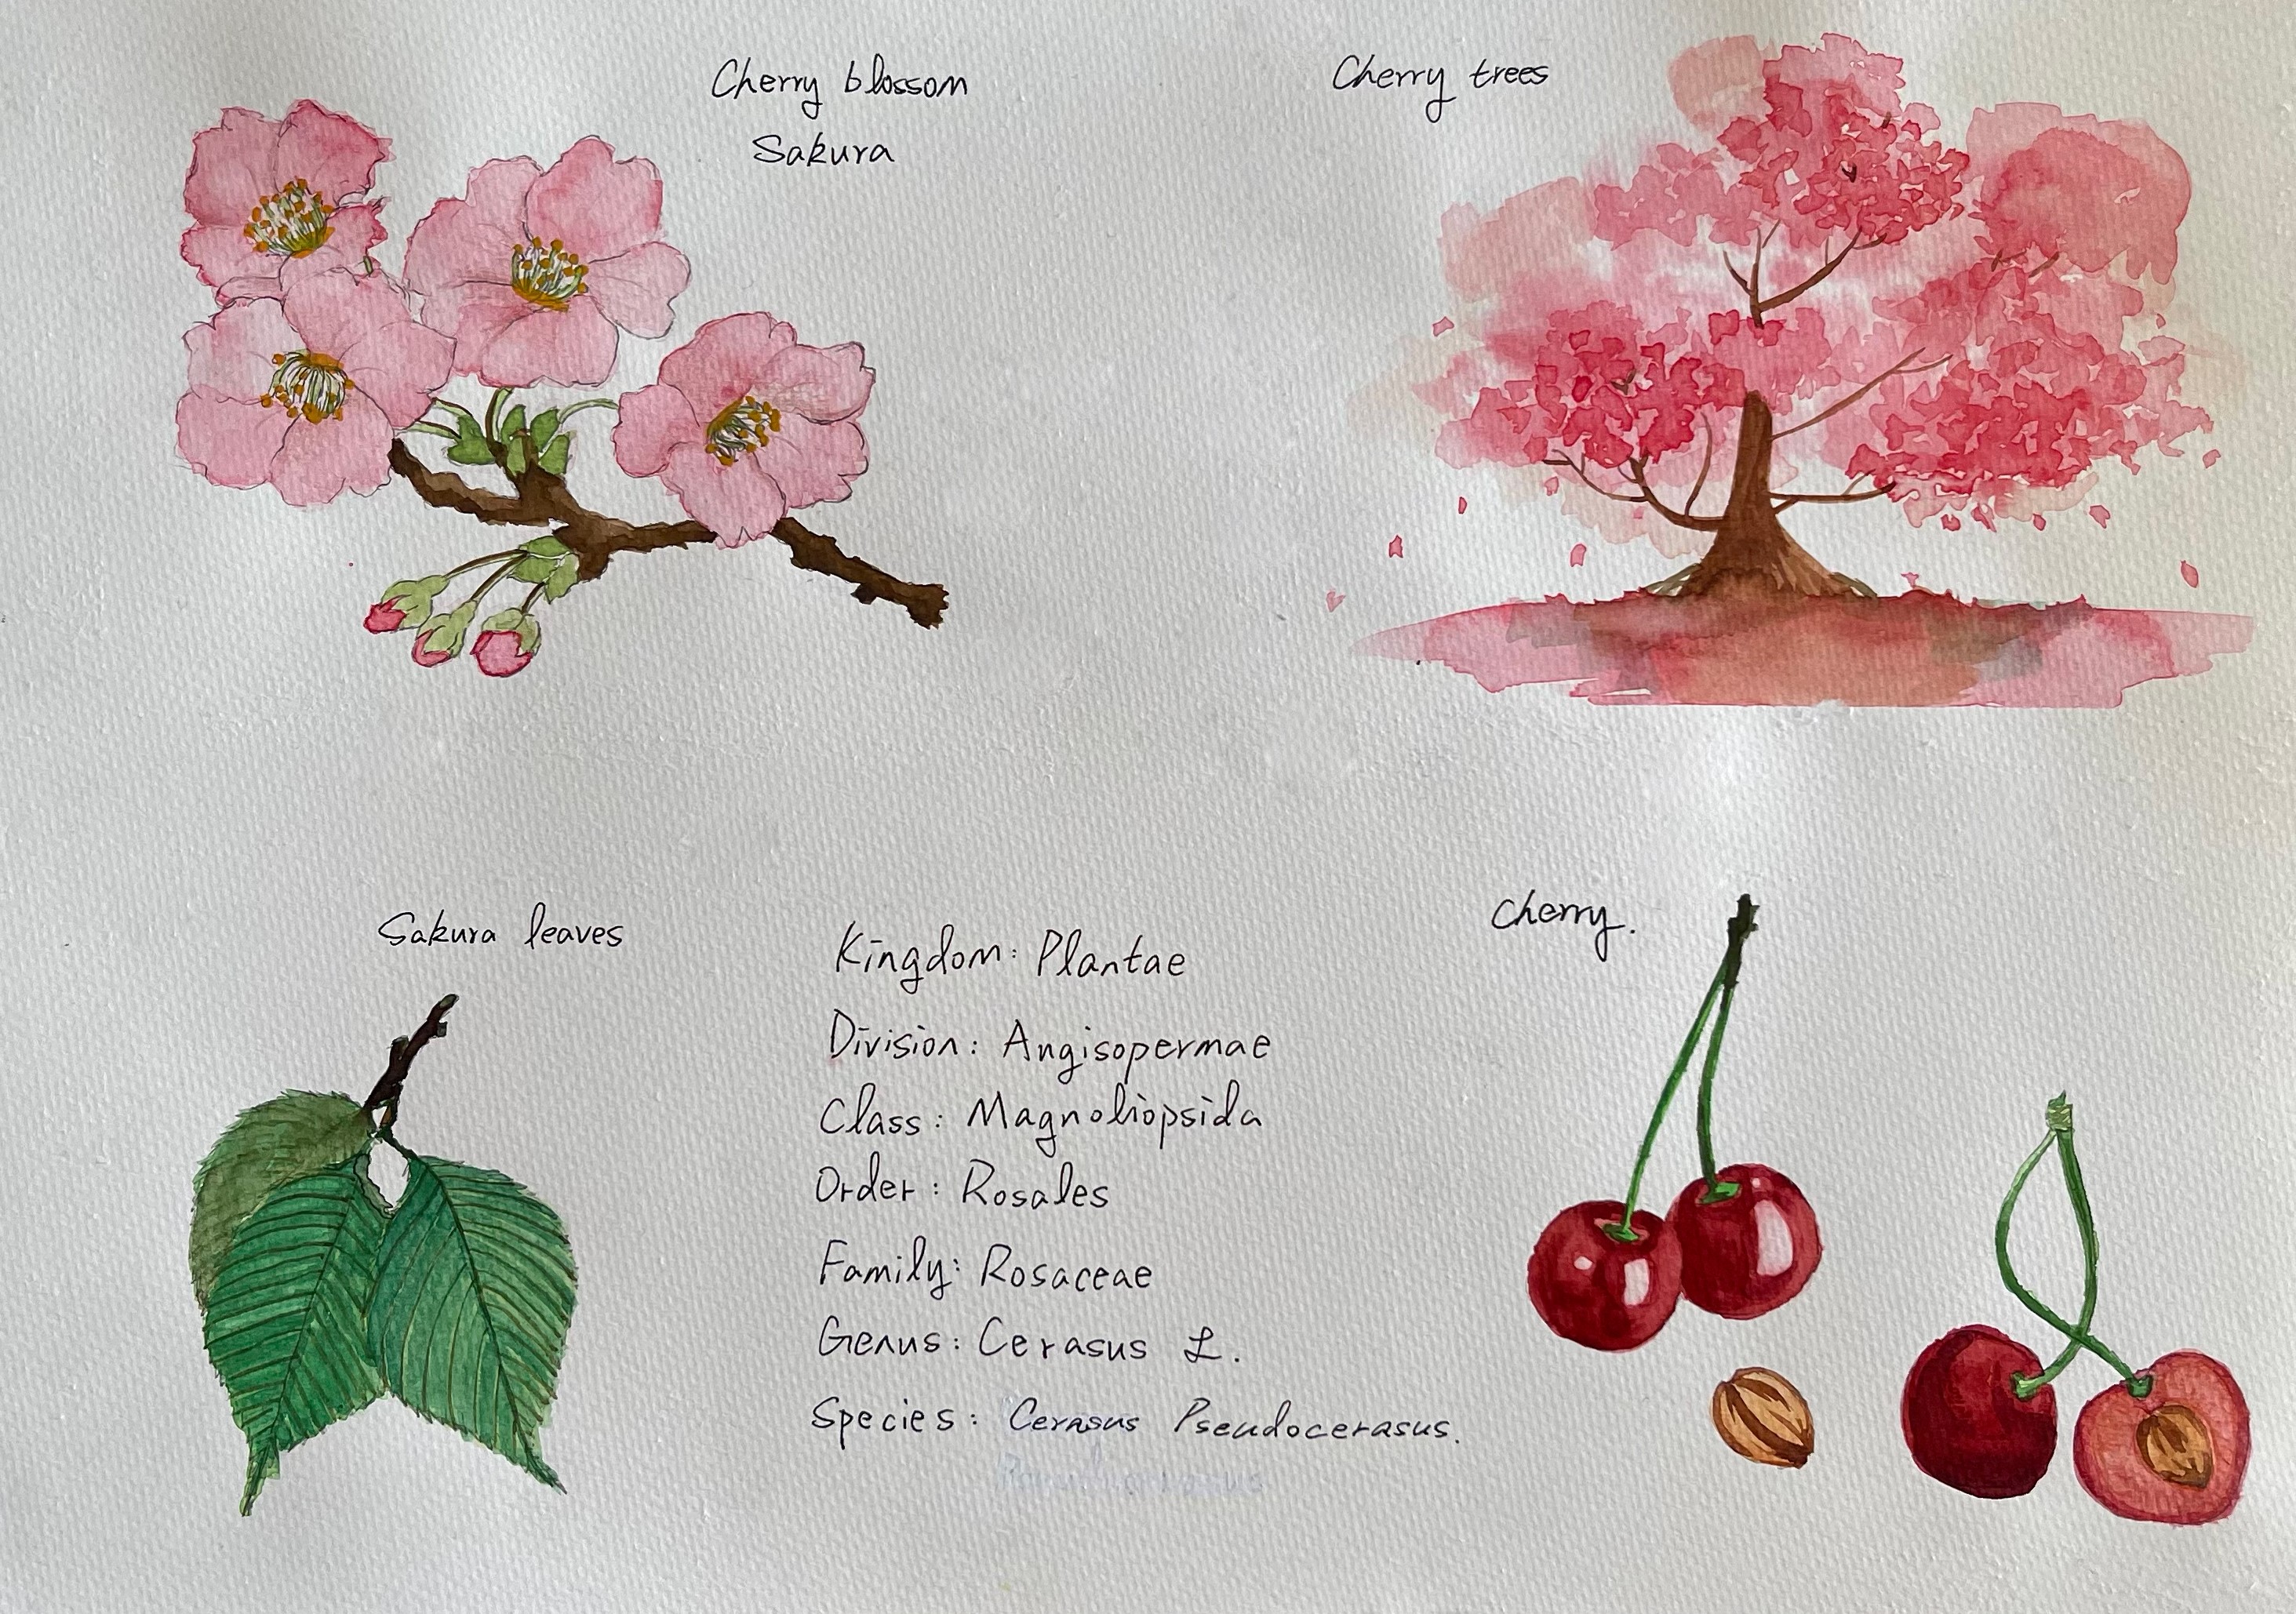 Cherry blossom
Sakura
Cherry trees
Sakura leaves
Kingdom: Plantae
Division: Angisopermae
Class: Magnoliopsida
Order: Rosales
Family: Rosaceae
Genus: Cerasus L.
Species: Cerasus Pseudocerasus.
Cherry.